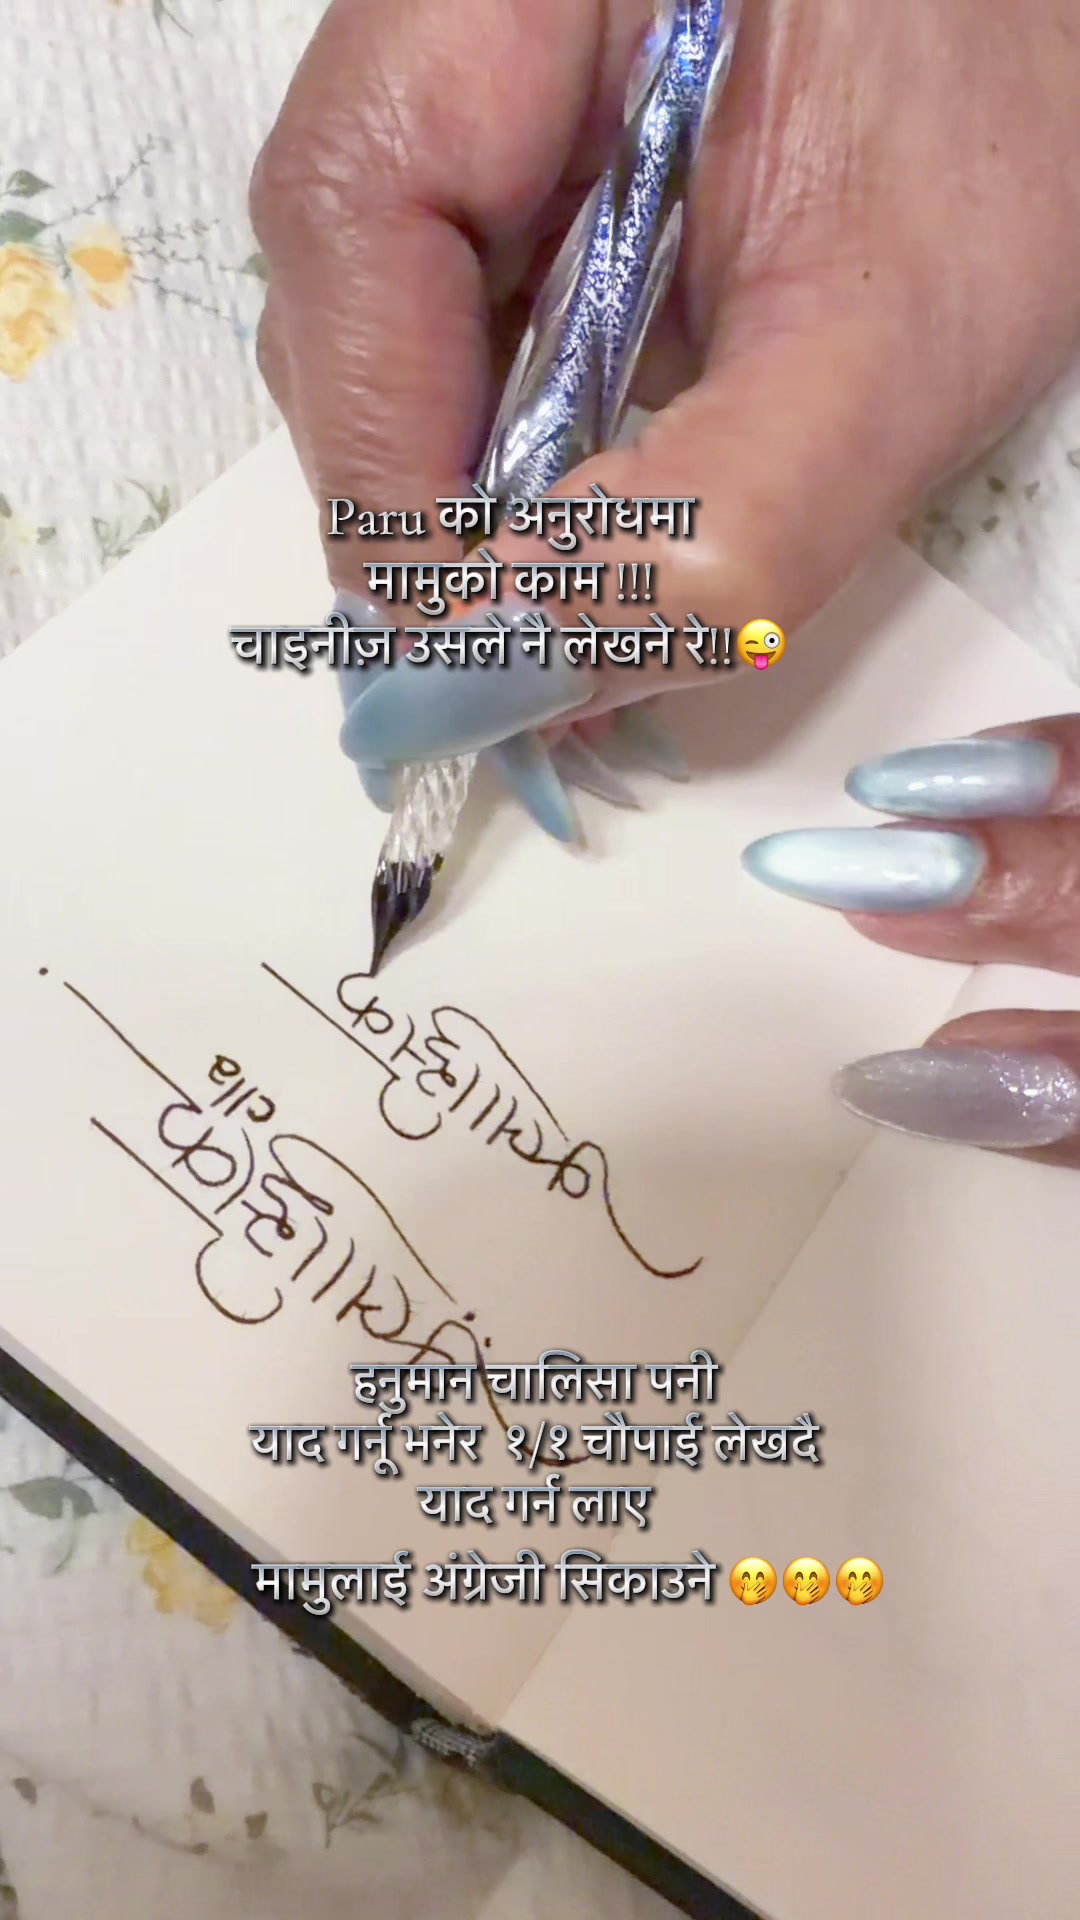 Paru को अनुरोधमा
मामुको काम !!!
चाइनीज़ उसले नै लेखने रे!!😜
हनुमान चालिसा पनी
याद गर्नू भनेर १/१ चौपाई लेखदै
याद गर्न लाए
मामुलाई अंग्रेजी सिकाउने 🤭🤭🤭